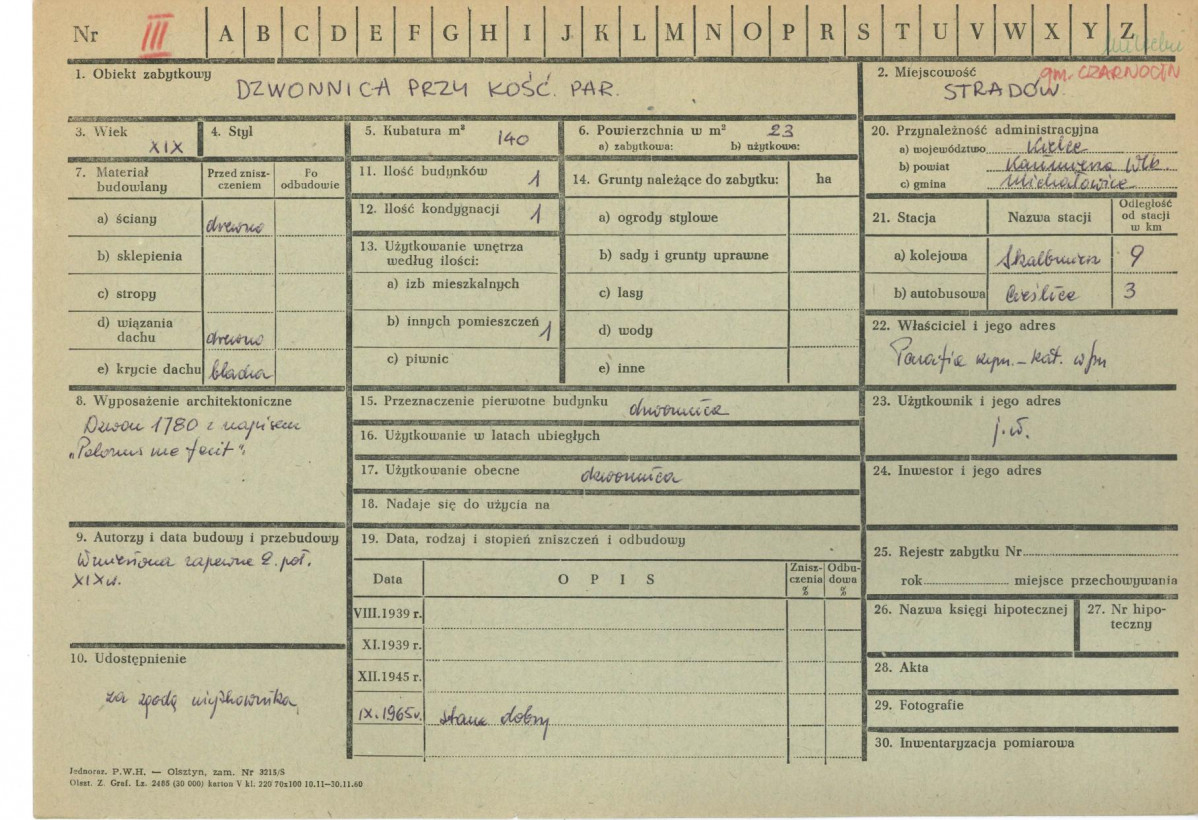 Nr III A B C D E F G H I J K L M N O P R S T U V W X Y Z
1. Obiekt zabytkowy
DZWONNICA PRZY KOŚĆ. PAR.
2. Miejscowość
gm. CZARNOCIN
STRADÓW
3. Wiek
XIX
4. Styl
5. Kubatura m³
140
6. Powierzchnia w m² 23
a) zabytkowa: b) użytkowa:
7. Materiał budowlany
Przed zniszczeniem
Po odbudowie
a) ściany drewno
b) sklepienia
c) stropy
d) wiązania dachu drewno
e) krycie dachu blacha
8. Wyposażenie architektoniczne
Dzwon 1780 z napisem
9. Autorzy i data budowy i przebudowy
Wzniesiona zapewne 2. poł.
XIX w.
10. Udostępnienie
za zgodą użytkownika
11. Ilość budynków 1
12. Ilość kondygnacji 1
13. Użytkowanie wnętrza
według ilości:
a) izb mieszkalnych
b) innych pomieszczeń 1
c) piwnic
14. Grunty należące do zabytku: ha
a) ogrody stylowe
b) sady i grunty uprawne
c) lasy
d) wody
e) inne
15. Przeznaczenie pierwotne budynku dzwonnica
16. Użytkowanie w latach ubiegłych
17. Użytkowanie obecne dzwonnica
18. Nadaje się do użycia na
19. Data, rodzaj i stopień zniszczeń i odbudowy
Data OPIS Zniszczenia % Odbudowa %
VIII.1939 r.
XI.1939 r.
XII.1945 r.
IX.1965 r. stan dobry
20. Przynależność administracyjna
a) województwo Kielce
b) powiat Kazimierza Wlk.
c) gmina Michałowice
21. Stacja Nazwa stacji Odległość od stacji w km
a) kolejowa Skalbmierz 9
b) autobusowa Cieślice 3
22. Właściciel i jego adres
Parafia rzym.-kat. w/m
23. Użytkownik i jego adres
j.w.
24. Inwestor i jego adres
25. Rejestr zabytku Nr
rok miejsce przechowywania
26. Nazwa księgi hipotecznej
27. Nr hipoteczny
28. Akta
29. Fotografie
30. Inwentaryzacja pomiarowa
Jednoraz. P.W.H. — Olsztyn, zam. Nr 3215/S
Olszt. Z. Graf. Lz. 2485 (30 000) karton V kl. 220 70x100 10.11—30.11.60